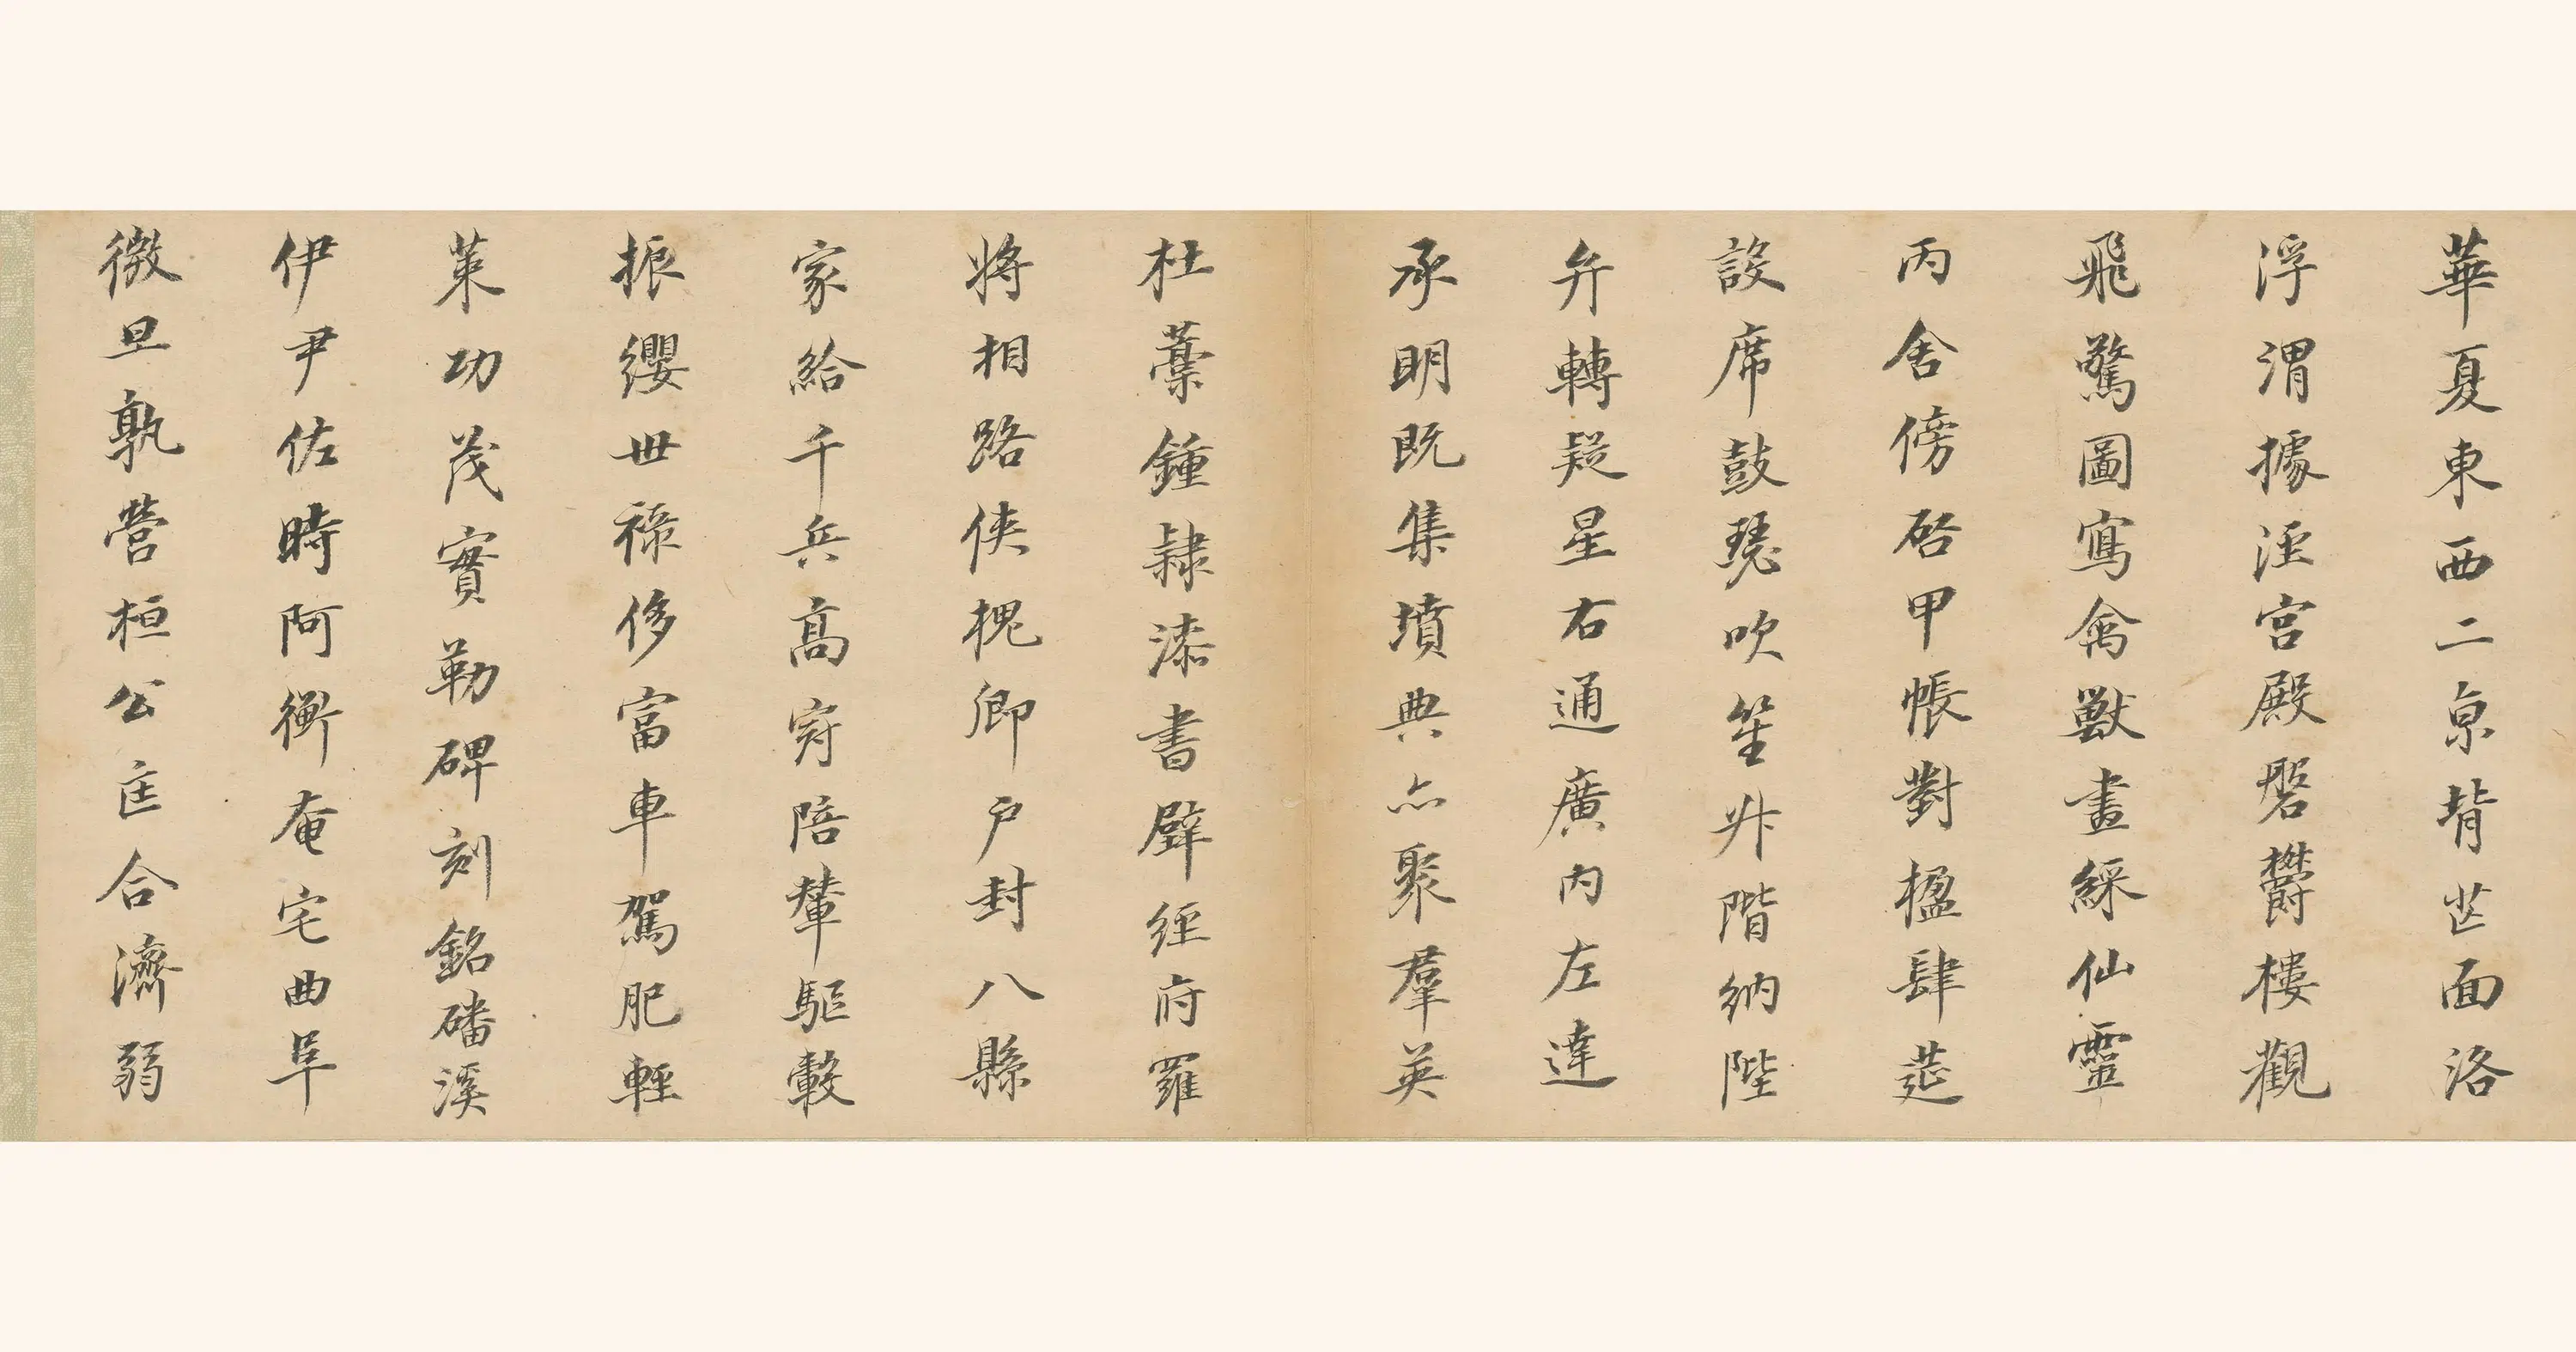 華夏東西二京背芒面洛
浮渭據涇宮殿磐鬱樓觀
飛驚圖寫禽獸畫綵仙靈
丙舍傍啓甲帳對楹肆筵
設席鼓瑟吹笙升階納陛
弁轉疑星右通廣内左達
承明既集墳典亦聚羣英
杜藁鍾隸漆書壁經府羅
將相路俠槐卿户封八縣
家給千兵高冠陪輦驅轂
振纓世祿侈富車駕肥輕
策功茂實勒碑刻銘磻溪
伊尹佐時阿衡奄宅曲阜
微旦孰營桓公匡合濟弱